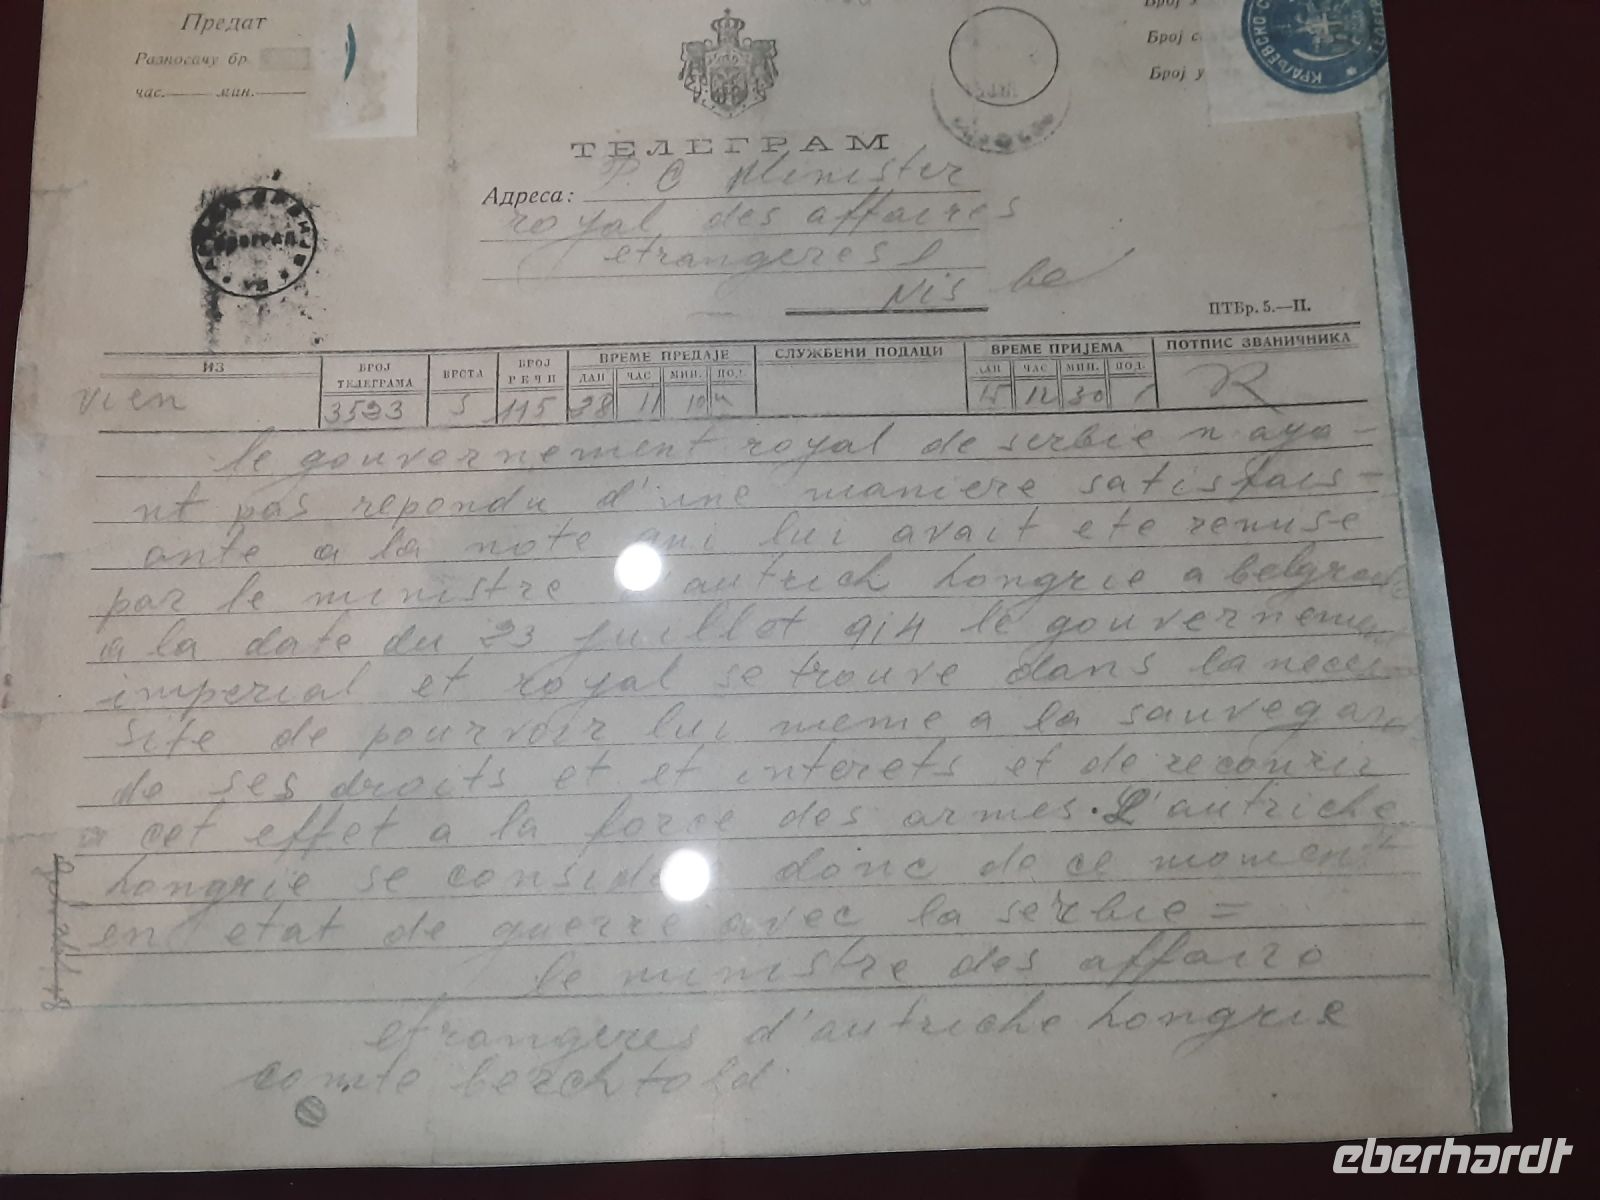 Предат
Разносачу бр.
час. мин.
Број с
Број у
ТЕЛЕГРАМ
Адреса: P. C Minister
royal des affaires
etrangeres
Nis be
ПТБр. 5.—II.
ИЗ
БРОЈ ТЕЛЕГРАМА
ВРСТА
БРОЈ РЕЧИ
ВРЕМЕ ПРЕДАЈЕ
СЛУЖБЕНИ ПОДАЦИ
ВРЕМЕ ПРИЈЕМА
ПОТПИС ЗВАНИЧНИКА
ДАН ЧАС МИН. ПОД. ДАН ЧАС МИН. ПОД.
vien 3523 S 115 28 11 10 15 12 30
le gouvernement royal de serbie n aya-
nt pas repondu d'une maniere satisfais-
ante a la note qui lui avait ete remise
par le ministre d'autrich hongrie a belgrade
a la date du 23 juillet 914 le gouvernement
imperial et royal se trouve dans la neces-
site de pourvoir lui meme a la sauvegar
de ses droits et et interets et de recourir
a cet effet a la force des armes. L'autriche
hongrie se consider donc de ce moment
en etat de guerre avec la serbie =
le ministre des affaire
etrangeres d'autriche hongrie
comte berchtold.
eberhardt